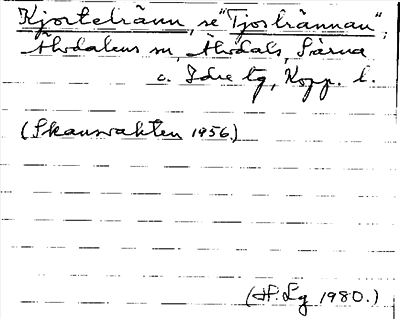 Kjortelränn, se "Tjostrännan",
Älvdalens sn, Älvdals, Särna
o. Idre tg, Kopp. l.
(Skansvakten 1956.)
(H. Lg 1980.)